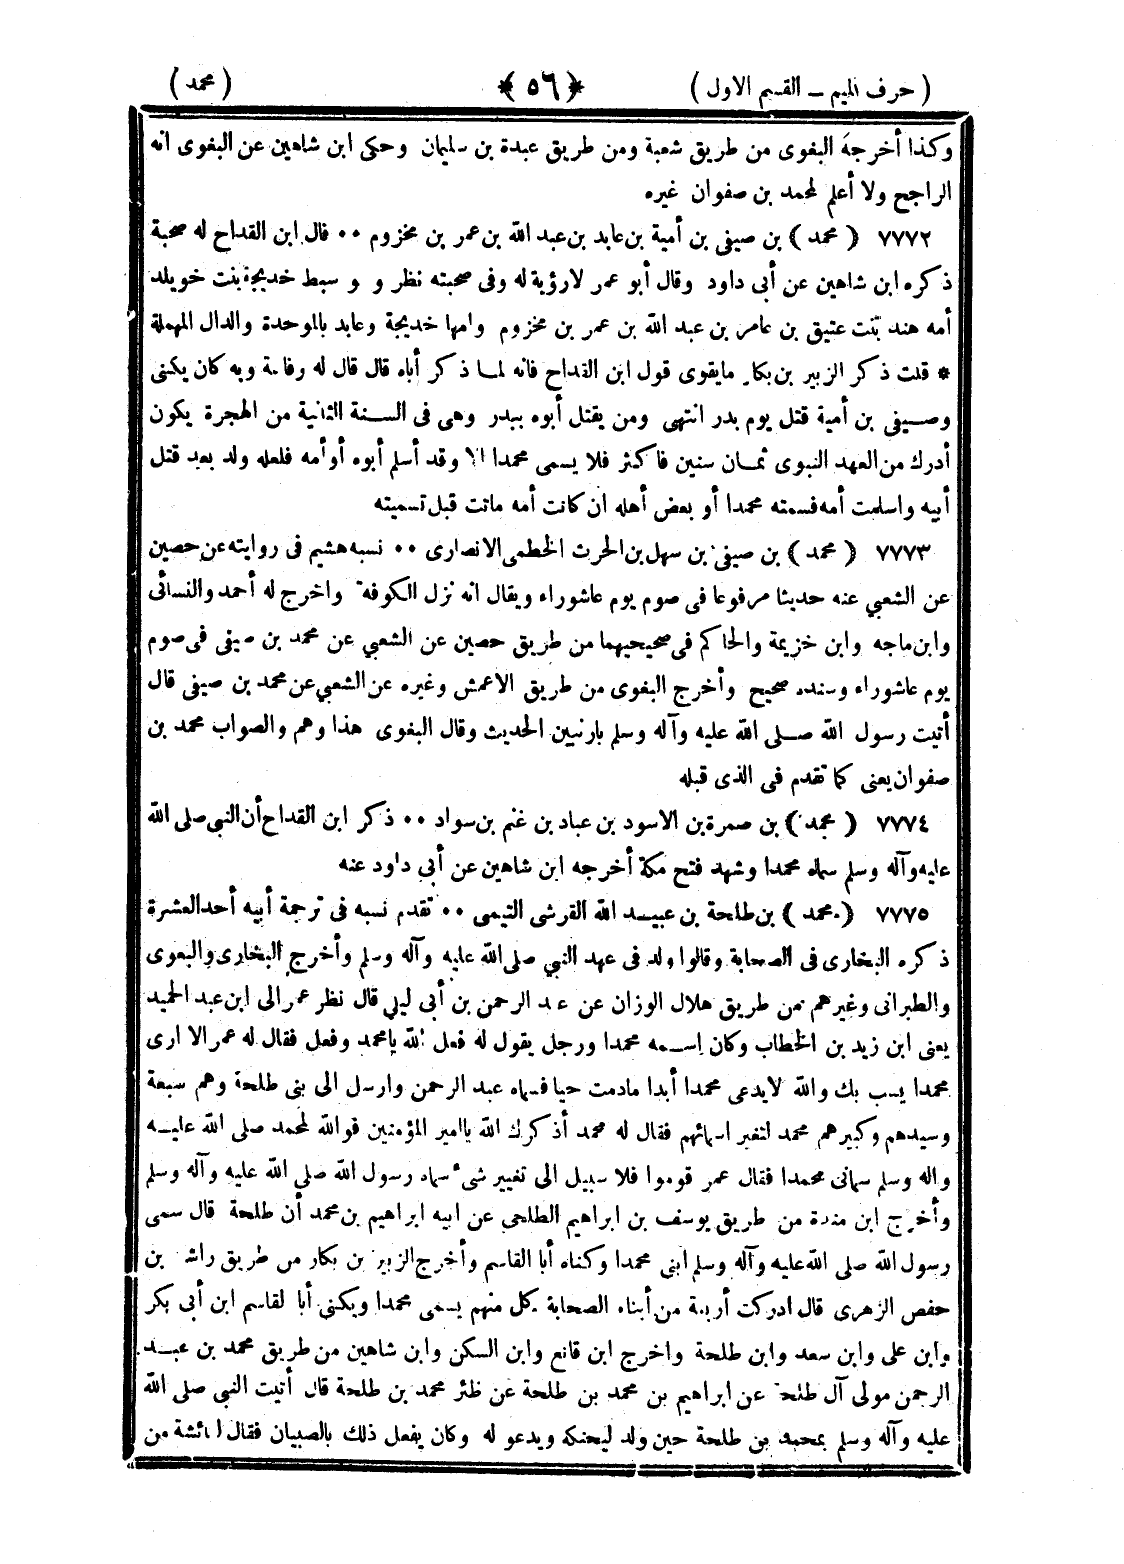 ( حرف الميم ــ القسم الاول ) ﴿ ٥٦ ﴾ ( محمد )
وكذا أخرجه البغوى من طريق شعبة ومن طريق عبدة بن سليمان وحكى ابن شاهين عن البغوى انه
الراجح ولا أعلم لمحمد بن صفوان غيره
٧٧٧٢ ﴿ محمد ﴾ بن صيفى بن أمية بن عابد بن عبد الله بن عمر بن مخزوم ٠٠ قال ابن القداح له صحبة
ذكره ابن شاهين عن أبى داود وقال أبو عمر لارؤية له وفى صحبته نظر و و سبط خديجة بنت خويلد
أمه هند بنت عتيق بن عامر بن عبد الله بن عمر بن مخزوم وامها خديجة وعابد بالموحدة والدال المهملة
* قلت ذكر الزبير بن بكار مايقوى قول ابن القداح فانه لما ذكر أباه قال قال له رفاعة وبه كان يكنى
وصيفى بن أمية قتل يوم بدر انتهى ومن يقتل أبوه ببدر وهى فى السنة الثانية من الهجرة يكون
أدرك من العهد النبوى ثمان سنين فاكثر فلا يسمى محمدا الا وقد أسلم أبوه أو أمه فلعله ولد بعد قتل
أبيه واسلمت أمه فسمته محمدا أو بعض أهله ان كانت أمه ماتت قبل تسميته
٧٧٧٣ ﴿ محمد ﴾ بن صيفى بن سهل بن الحرث الخطمى الانصارى ٠٠ نسبه هشيم فى روايته عن حصين
عن الشعبي عنه حديثا مرفوعا فى صوم يوم عاشوراء ويقال انه نزل الكوفة واخرج له أحمد والنسائى
وابن ماجه وابن خزيمة والحاكم فى صحيحيهما من طريق حصين عن الشعبي عن محمد بن صيفى فى صوم
يوم عاشوراء وسنده صحيح وأخرج البغوى من طريق الاعمش وغيره عن الشعبي عن محمد بن صيفى قال
أتيت رسول الله صلى الله عليه وآله وسلم بارنبين الحديث وقال البغوى هذا وهم والصواب محمد بن
صفوان يعنى كما تقدم فى الذى قبله
٧٧٧٤ ﴿ محمد ﴾ بن ضمرة بن الاسود بن عباد بن غنم بن سواد ٠٠ ذكر ابن القداح أن النبي صلى الله
عليه وآله وسلم سماه محمدا وشهد فتح مكة أخرجه ابن شاهين عن أبي داود عنه
٧٧٧٥ ﴿ محمد ﴾ بن طلحة بن عبيد الله القرشى التيمى ٠٠ تقدم نسبه فى ترجمة أبيه أحد العشرة
ذكره البخارى فى الصحابة وقالوا ولد فى عهد النبي صلى الله عليه وآله وسلم وأخرج البخارى والبغوى
والطبرانى وغيرهم من طريق هلال الوزان عن عبد الرحمن بن أبى ليلى قال نظر عمر الى ابن عبد الحميد
يعنى ابن زيد بن الخطاب وكان اسمه محمدا ورجل يقول له فعل الله يا محمد وفعل فقال له عمر الا ارى
محمدا يسب بك والله لايدعى محمدا أبدا مادمت حيا فسماه عبد الرحمن وارسل الى بنى طلحة وهم سبعة
وسيدهم وكبيرهم محمد لتغير اسمائهم فقال له محمد أذكرك الله ياامير المؤمنين فوالله لمحمد صلى الله عليه
واله وسلم سمانى محمدا فقال عمر قوموا فلا سبيل الى تغيير شىء سماه رسول الله صلى الله عليه وآله وسلم
وأخرج ابن مندة من طريق يوسف بن ابراهيم الطلحى عن ابيه ابراهيم بن محمد أن طلحة قال سمى
رسول الله صلى الله عليه وآله وسلم ابنى محمدا وكناه أبا القاسم وأخرج الزبير بن بكار من طريق راشد بن
حفص الزهرى قال ادركت أربعة من أبناء الصحابة كل منهم يسمى محمدا ويكنى أبا القاسم ابن أبى بكر
وابن على وابن سعد وابن طلحة واخرج ابن قانع وابن السكن وابن شاهين من طريق محمد بن عبد
الرحمن مولى آل طلحة عن ابراهيم بن محمد بن طلحة عن ظئر محمد بن طلحة قال أتيت النبي صلى الله
عليه وآله وسلم بمحمد بن طلحة حين ولد ليحنكه ويدعو له وكان يفعل ذلك بالصبيان فقال لعائشة من